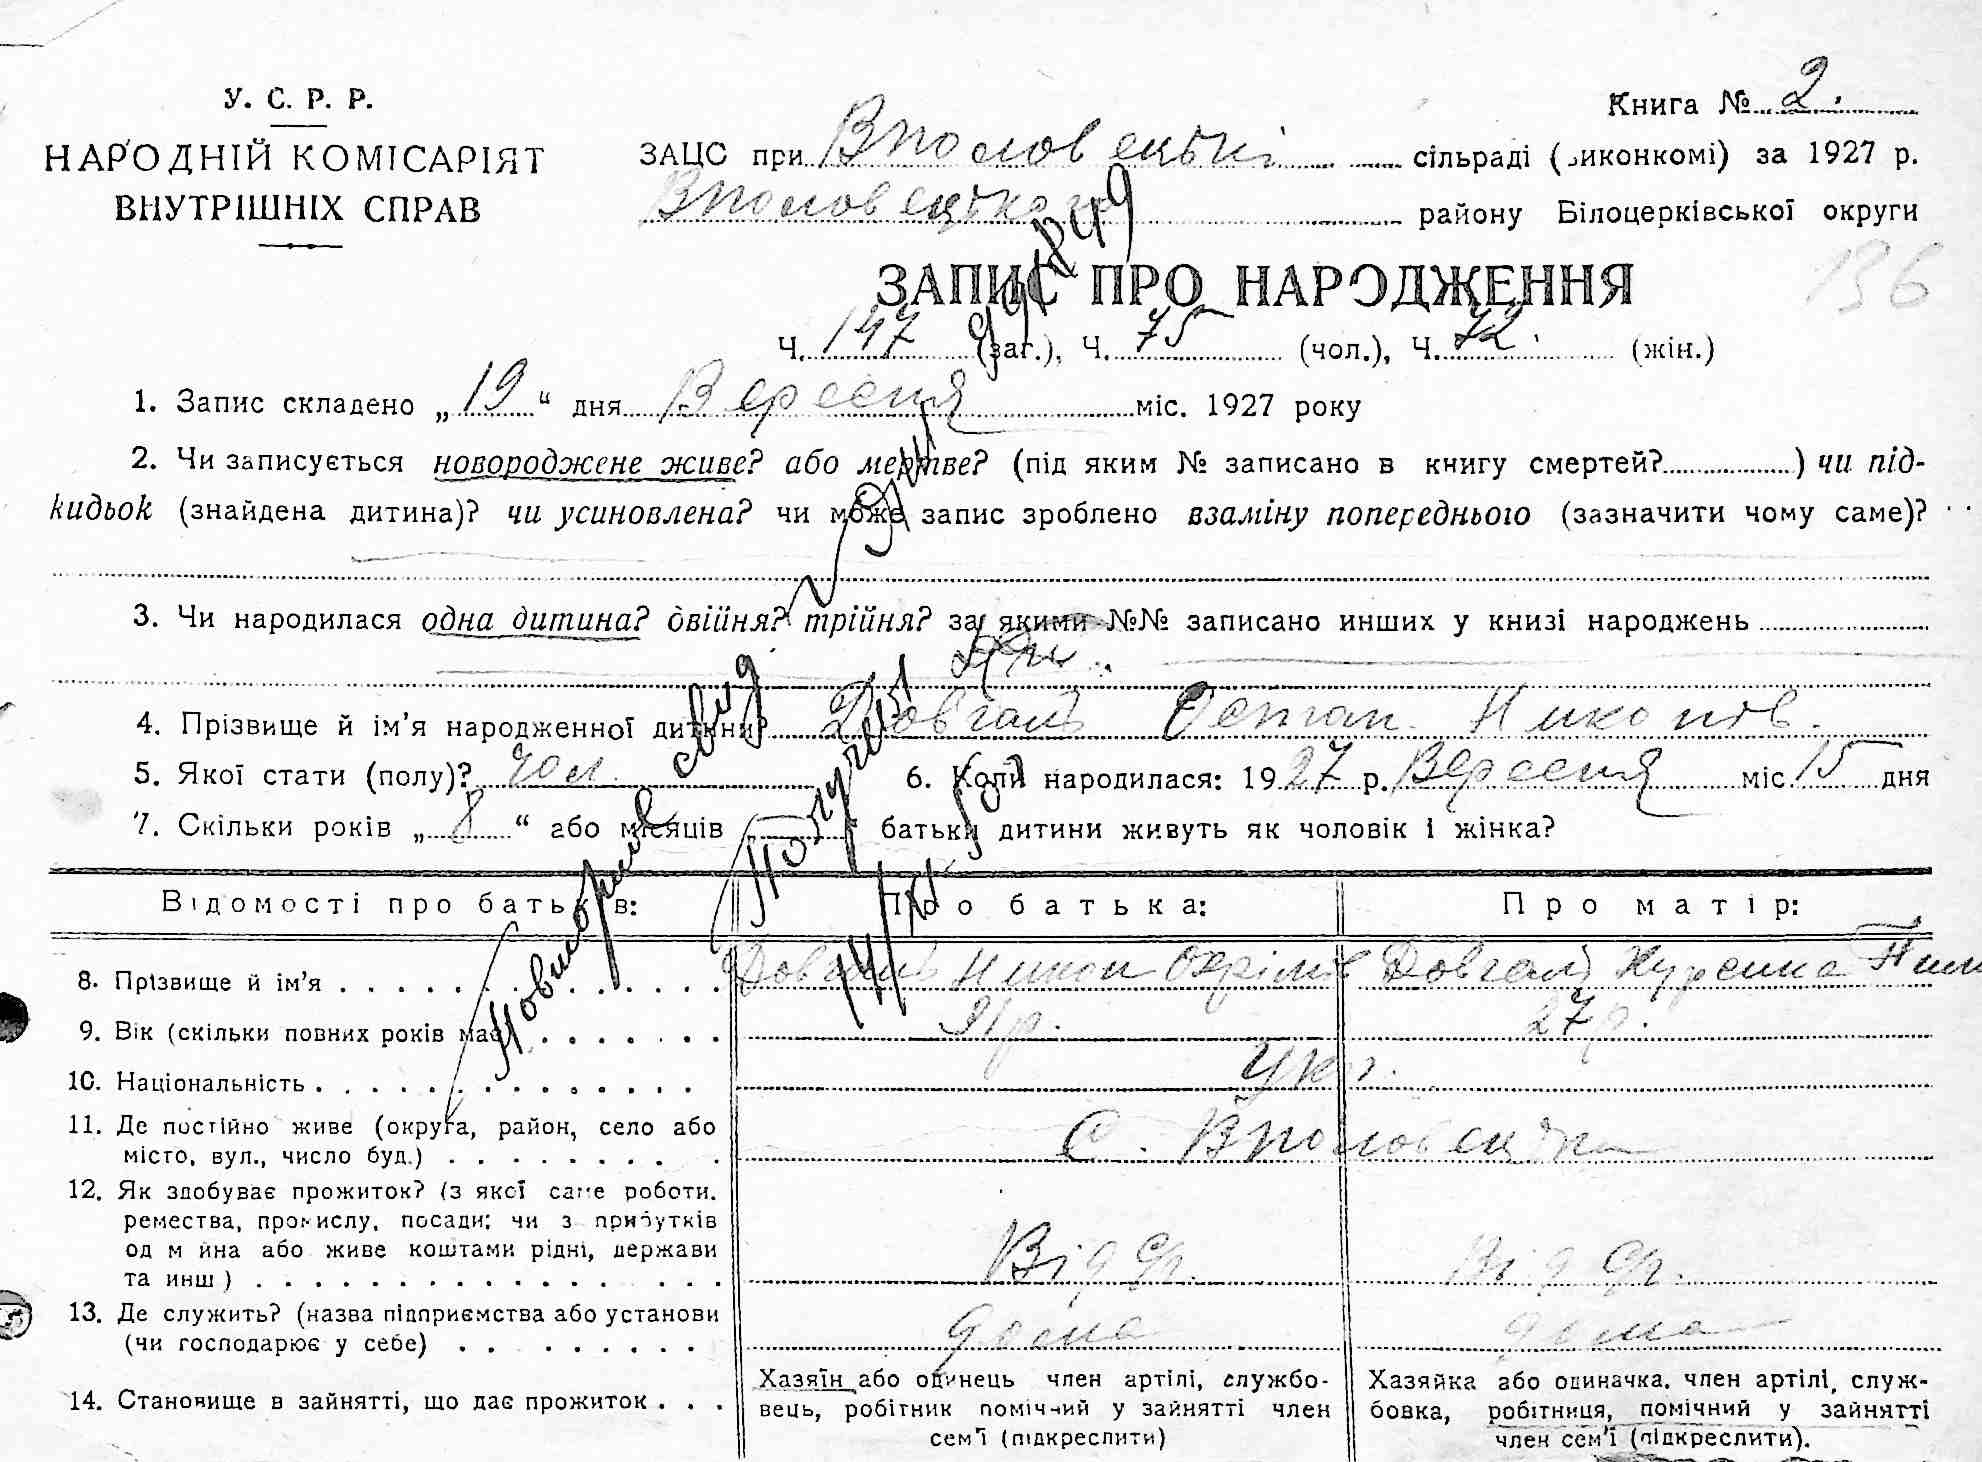 У. С. Р. Р.
НАРОДНІЙ КОМІСАРІЯТ
ВНУТРІШНІХ СПРАВ
Книга № 2.
ЗАЦС при Вполовецькі сільраді (виконкомі) за 1927 р.
Вполовецького району Білоцерківської округи
136
ЗАПИС ПРО НАРОДЖЕННЯ
Ч. 147 (заг.), Ч. 75 (чол.), Ч. 72. (жін.)
1. Запис складено „ 19 “ дня Вересня міс. 1927 року
2. Чи записується новороджене живе? або мертве? (під яким № записано в книгу смертей? ) чи під-
кидьок (знайдена дитина)? чи усиновлена? чи може запис зроблено взаміну попереднього (зазначити чому саме)?
3. Чи народилася одна дитина? двійня? трійня? за якими №№ записано инших у книзі народжень
4. Прізвище й ім'я народженної дитини Довгаль Остап Никонів.
5. Якої стати (полу)? чол. 6. Коли народилася: 19 27 р. Вересня міс. 15 дня
7. Скільки років „ 8 “ або місяців батьки дитини живуть як чоловік і жінка?
Відомості про батьків: Про батька: Про матір:
8. Прізвище й ім'я Довгаль Никон Довгаль
9. Вік (скільки повних років має) 31р. 27р.
10. Національність Укр.
11. Де постійно живе (округа, район, село або
місто, вул., число буд.) С. Вполовецьке
12. Як здобуває прожиток? (з якої саме роботи,
ремества, промислу, посади; чи з прибутків
од майна або живе коштами рідні, держави
та инш) Від ср. Від ср.
13. Де служить? (назва підприємства або установи
(чи господарює у себе) дома дома
14. Становище в зайнятті, що дає прожиток
Хазяїн або одинець член артілі, службо-
вець, робітник помічний у зайнятті член
сем'ї (підкреслити)
Хазяйка або одиначка, член артілі, служ-
бовка, робітниця, помічний у зайнятті
член сем'ї (підкреслити).
Повторне свид
Получил